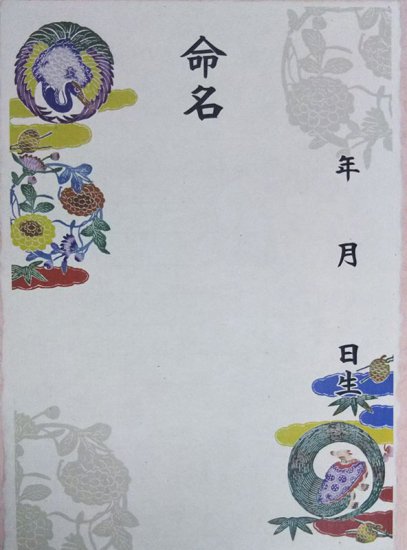 命名
年 月 日生